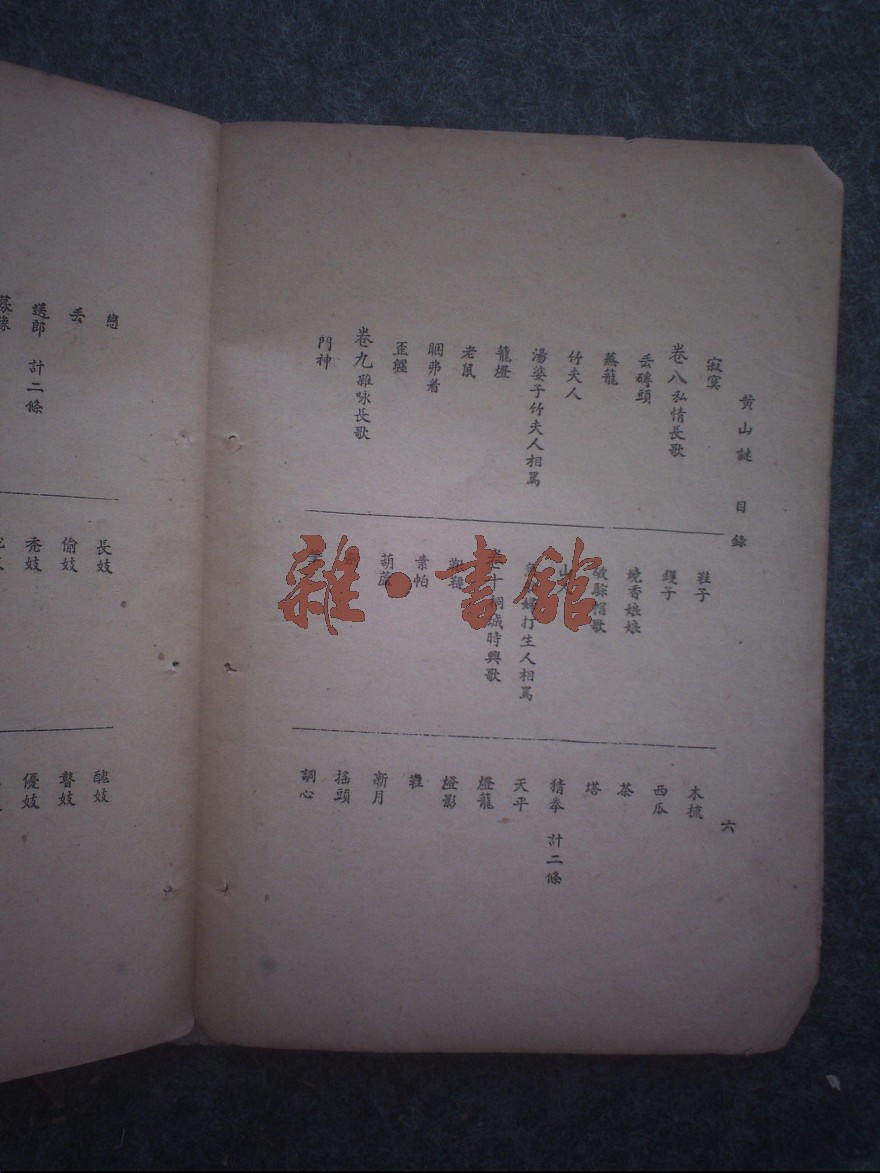 黃山謎 目錄
六
寂寞
卷八 私情長歌
丟磚頭
蒸籠
竹夫人
湯婆子竹夫人相罵
籠燈
老鼠
睏弗着
歪纏
卷九 雜咏長歌
門神
鞋子
鑊子
燒香娘娘
山人
魚船婦打生人相罵
卷十 桐城時興歌
鞦韆
素帕
葫蘆
木梳
西瓜
茶
塔
猜拳 計二條
天平
燈籠
燈影
鞋
新月
搖頭
調心
丟
送郎 計二條
募緣
長妓
偷妓
禿妓
醜妓
瞽妓
優妓
雜·書館